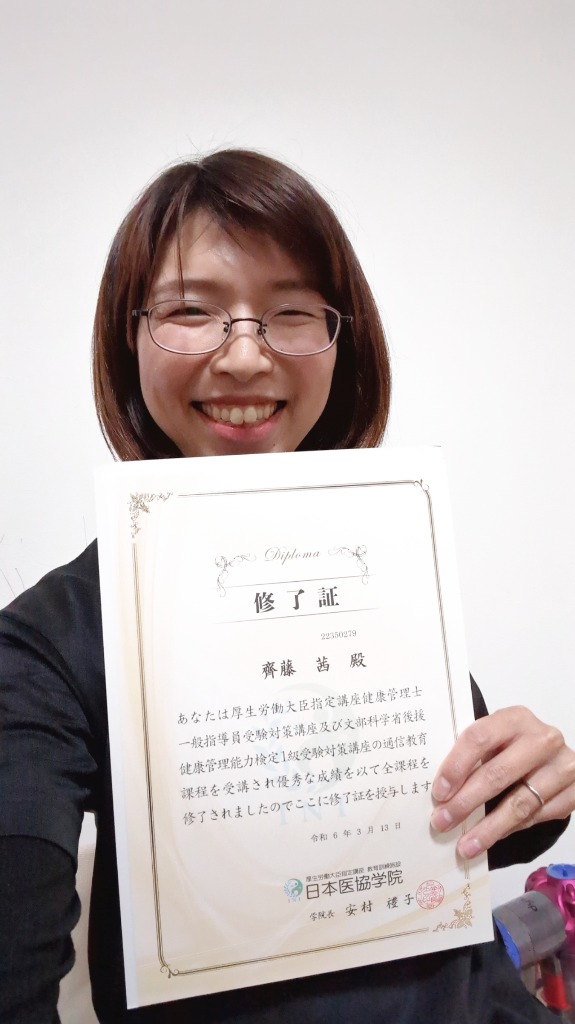 Diploma
修了証
22350279
齊藤 茜 殿
あなたは厚生労働大臣指定講座健康管理士
一般指導員受験対策講座及び文部科学省後援
健康管理能力検定1級受験対策講座の通信教育
課程を受講され優秀な成績を以て全課程を
修了されましたのでここに修了証を授与します
令和 6 年 3 月 13 日
厚生労働大臣指定講座 教育訓練施設
日本医協学院
学院長 安村 禮子